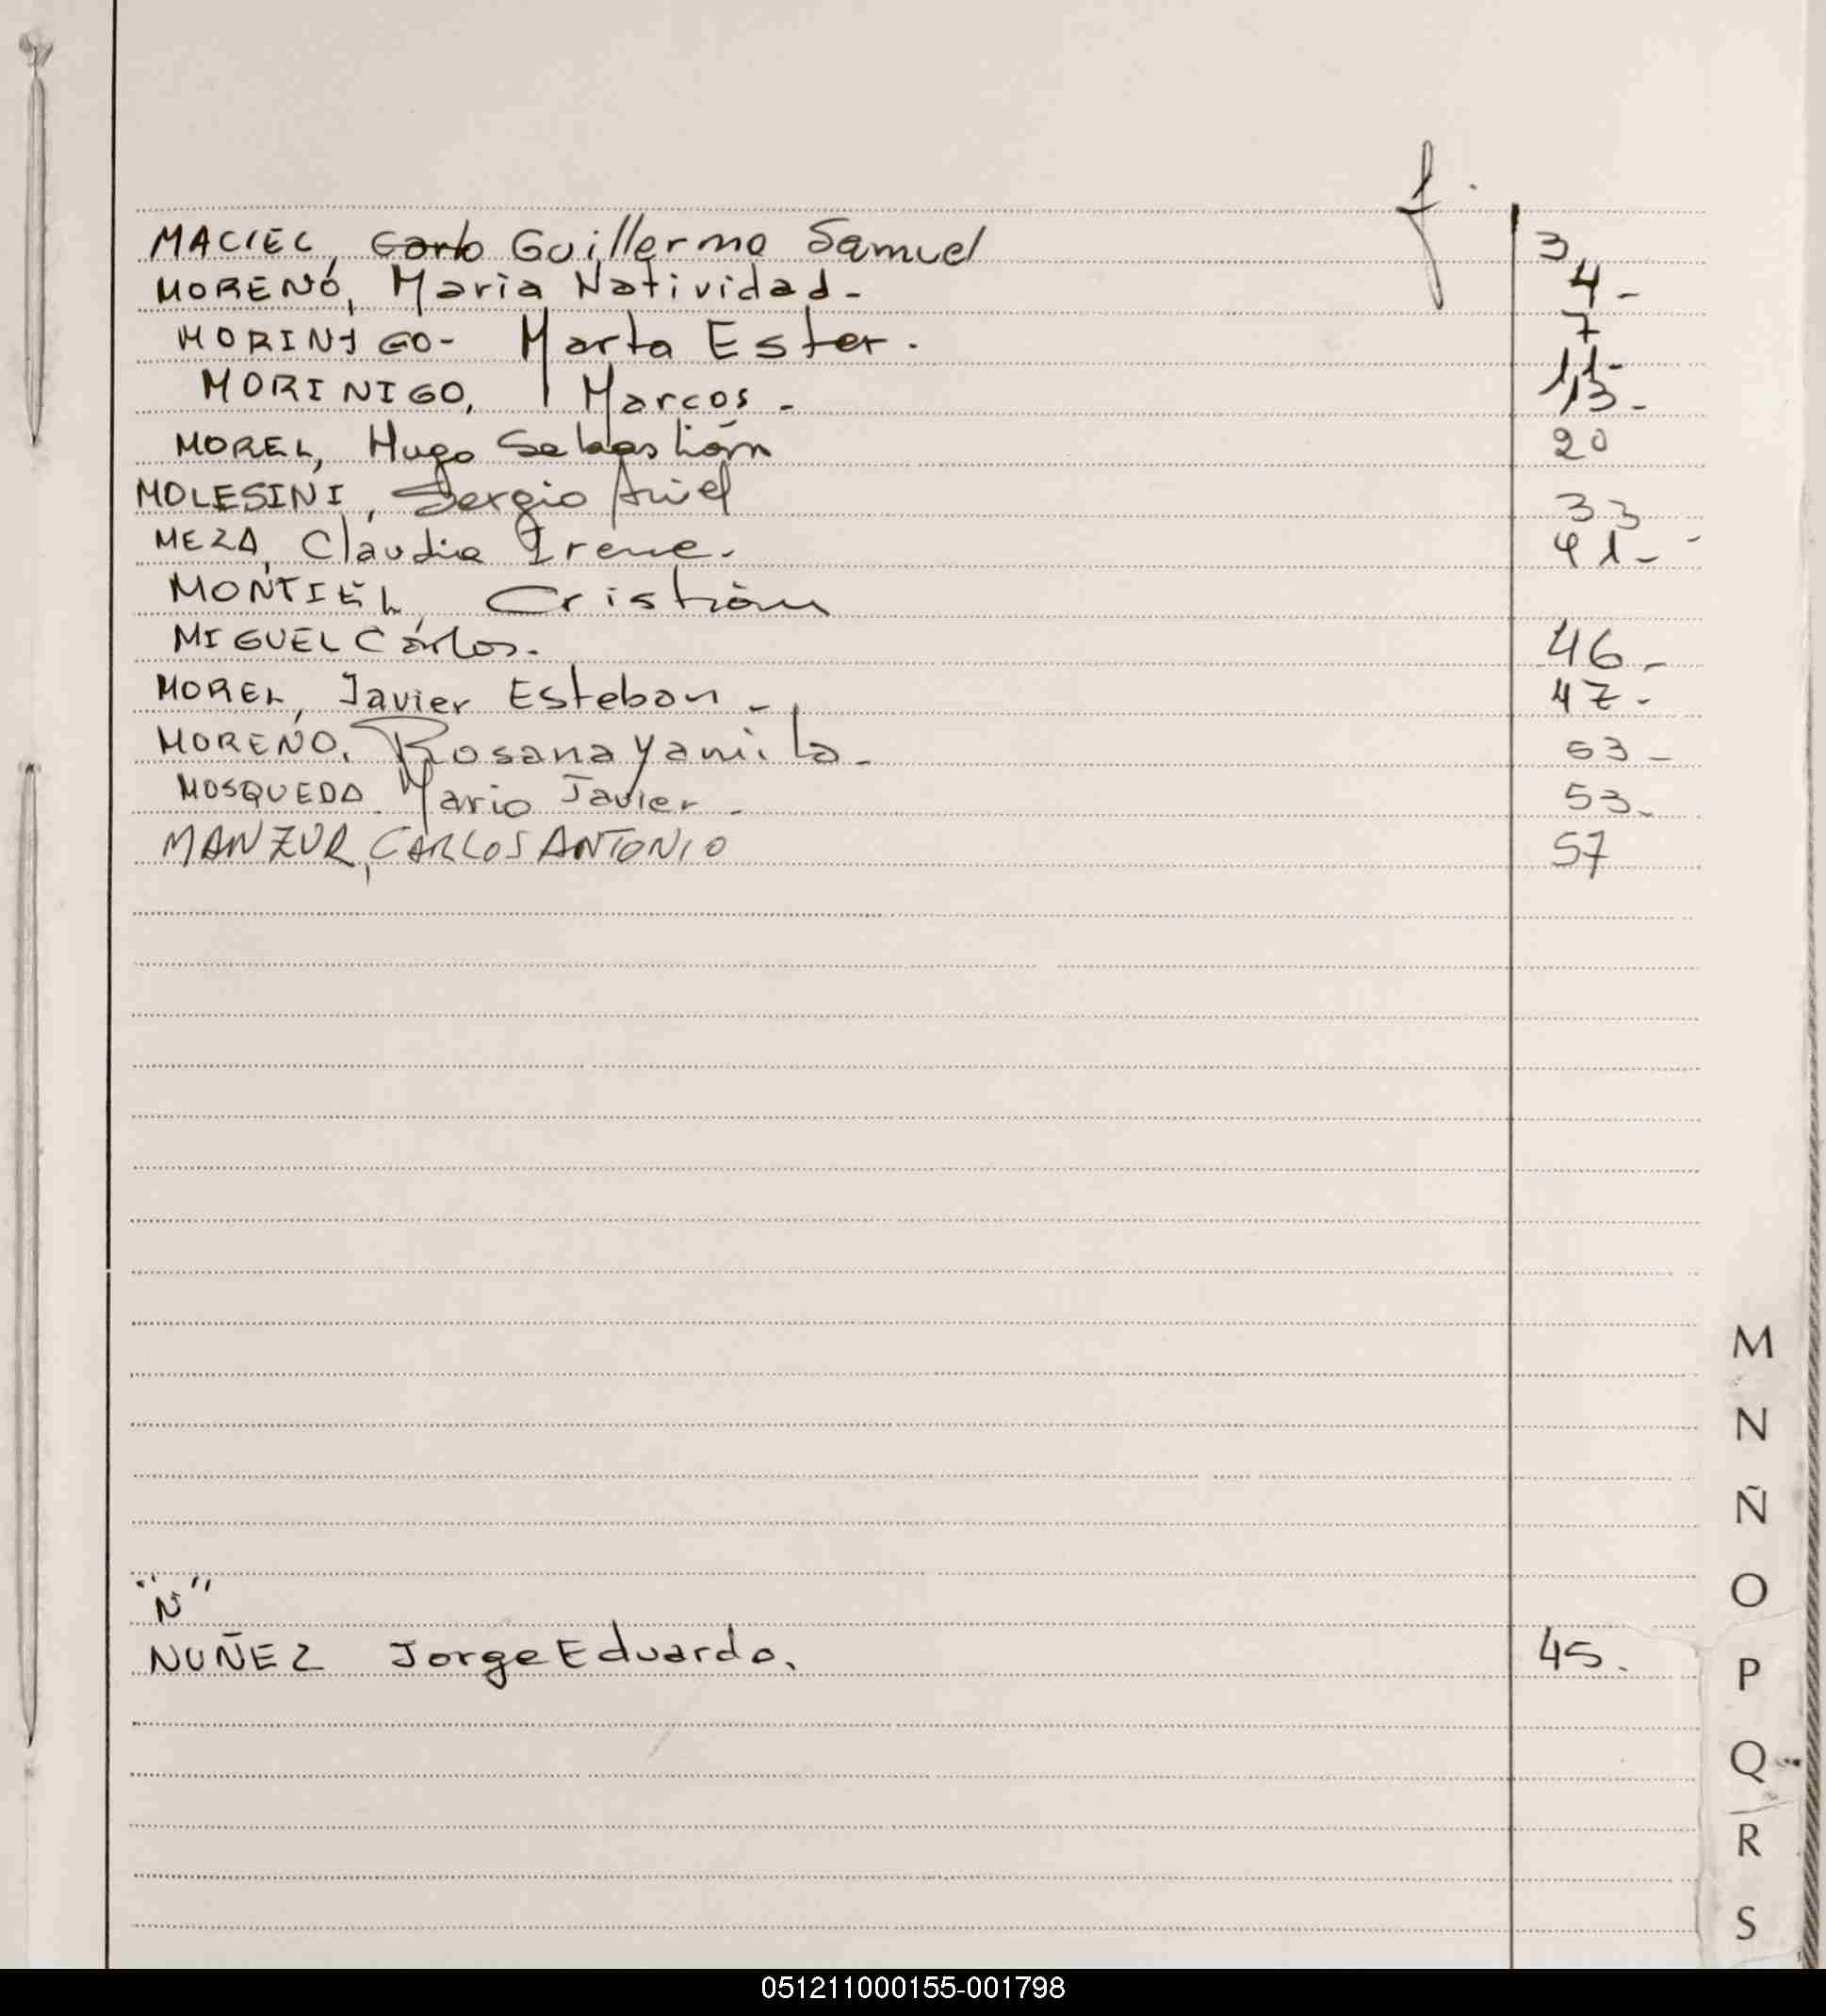 f.
MACIEL, Carlo Guillermo Samuel 3
MORENO, Maria Natividad- 4-
MORINIGO- Marta Ester. 7
11-
MORINIGO, Marcos- 13-
MOREL, Hugo Sebastián 20
MOLESINI, Sergio Ariel 33
MEZA, Claudia Irene. 41-
MONTIEL, Cristián
MIGUEL Carlos. 46-
MOREL, Javier Esteban- 47-
MORENO, Rosana Yamila- 53-
MOSQUEDA Mario Javier- 53-
MANZUR, CARLOS ANTONIO 57
M
N
Ñ
O
"N"
NUÑEZ Jorge Eduardo. 45.
P
Q
R
S
051211000155-001798